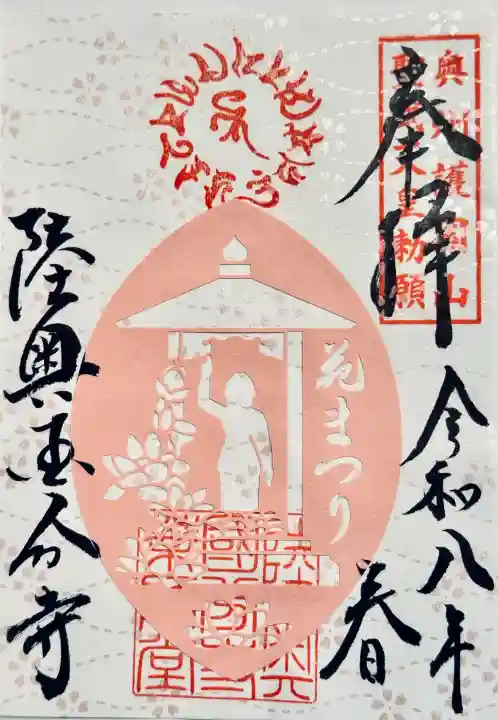 奉拝
奥州護国山
聖武天皇勅願
令和八年
美春
花まつり
陸奥国分寺